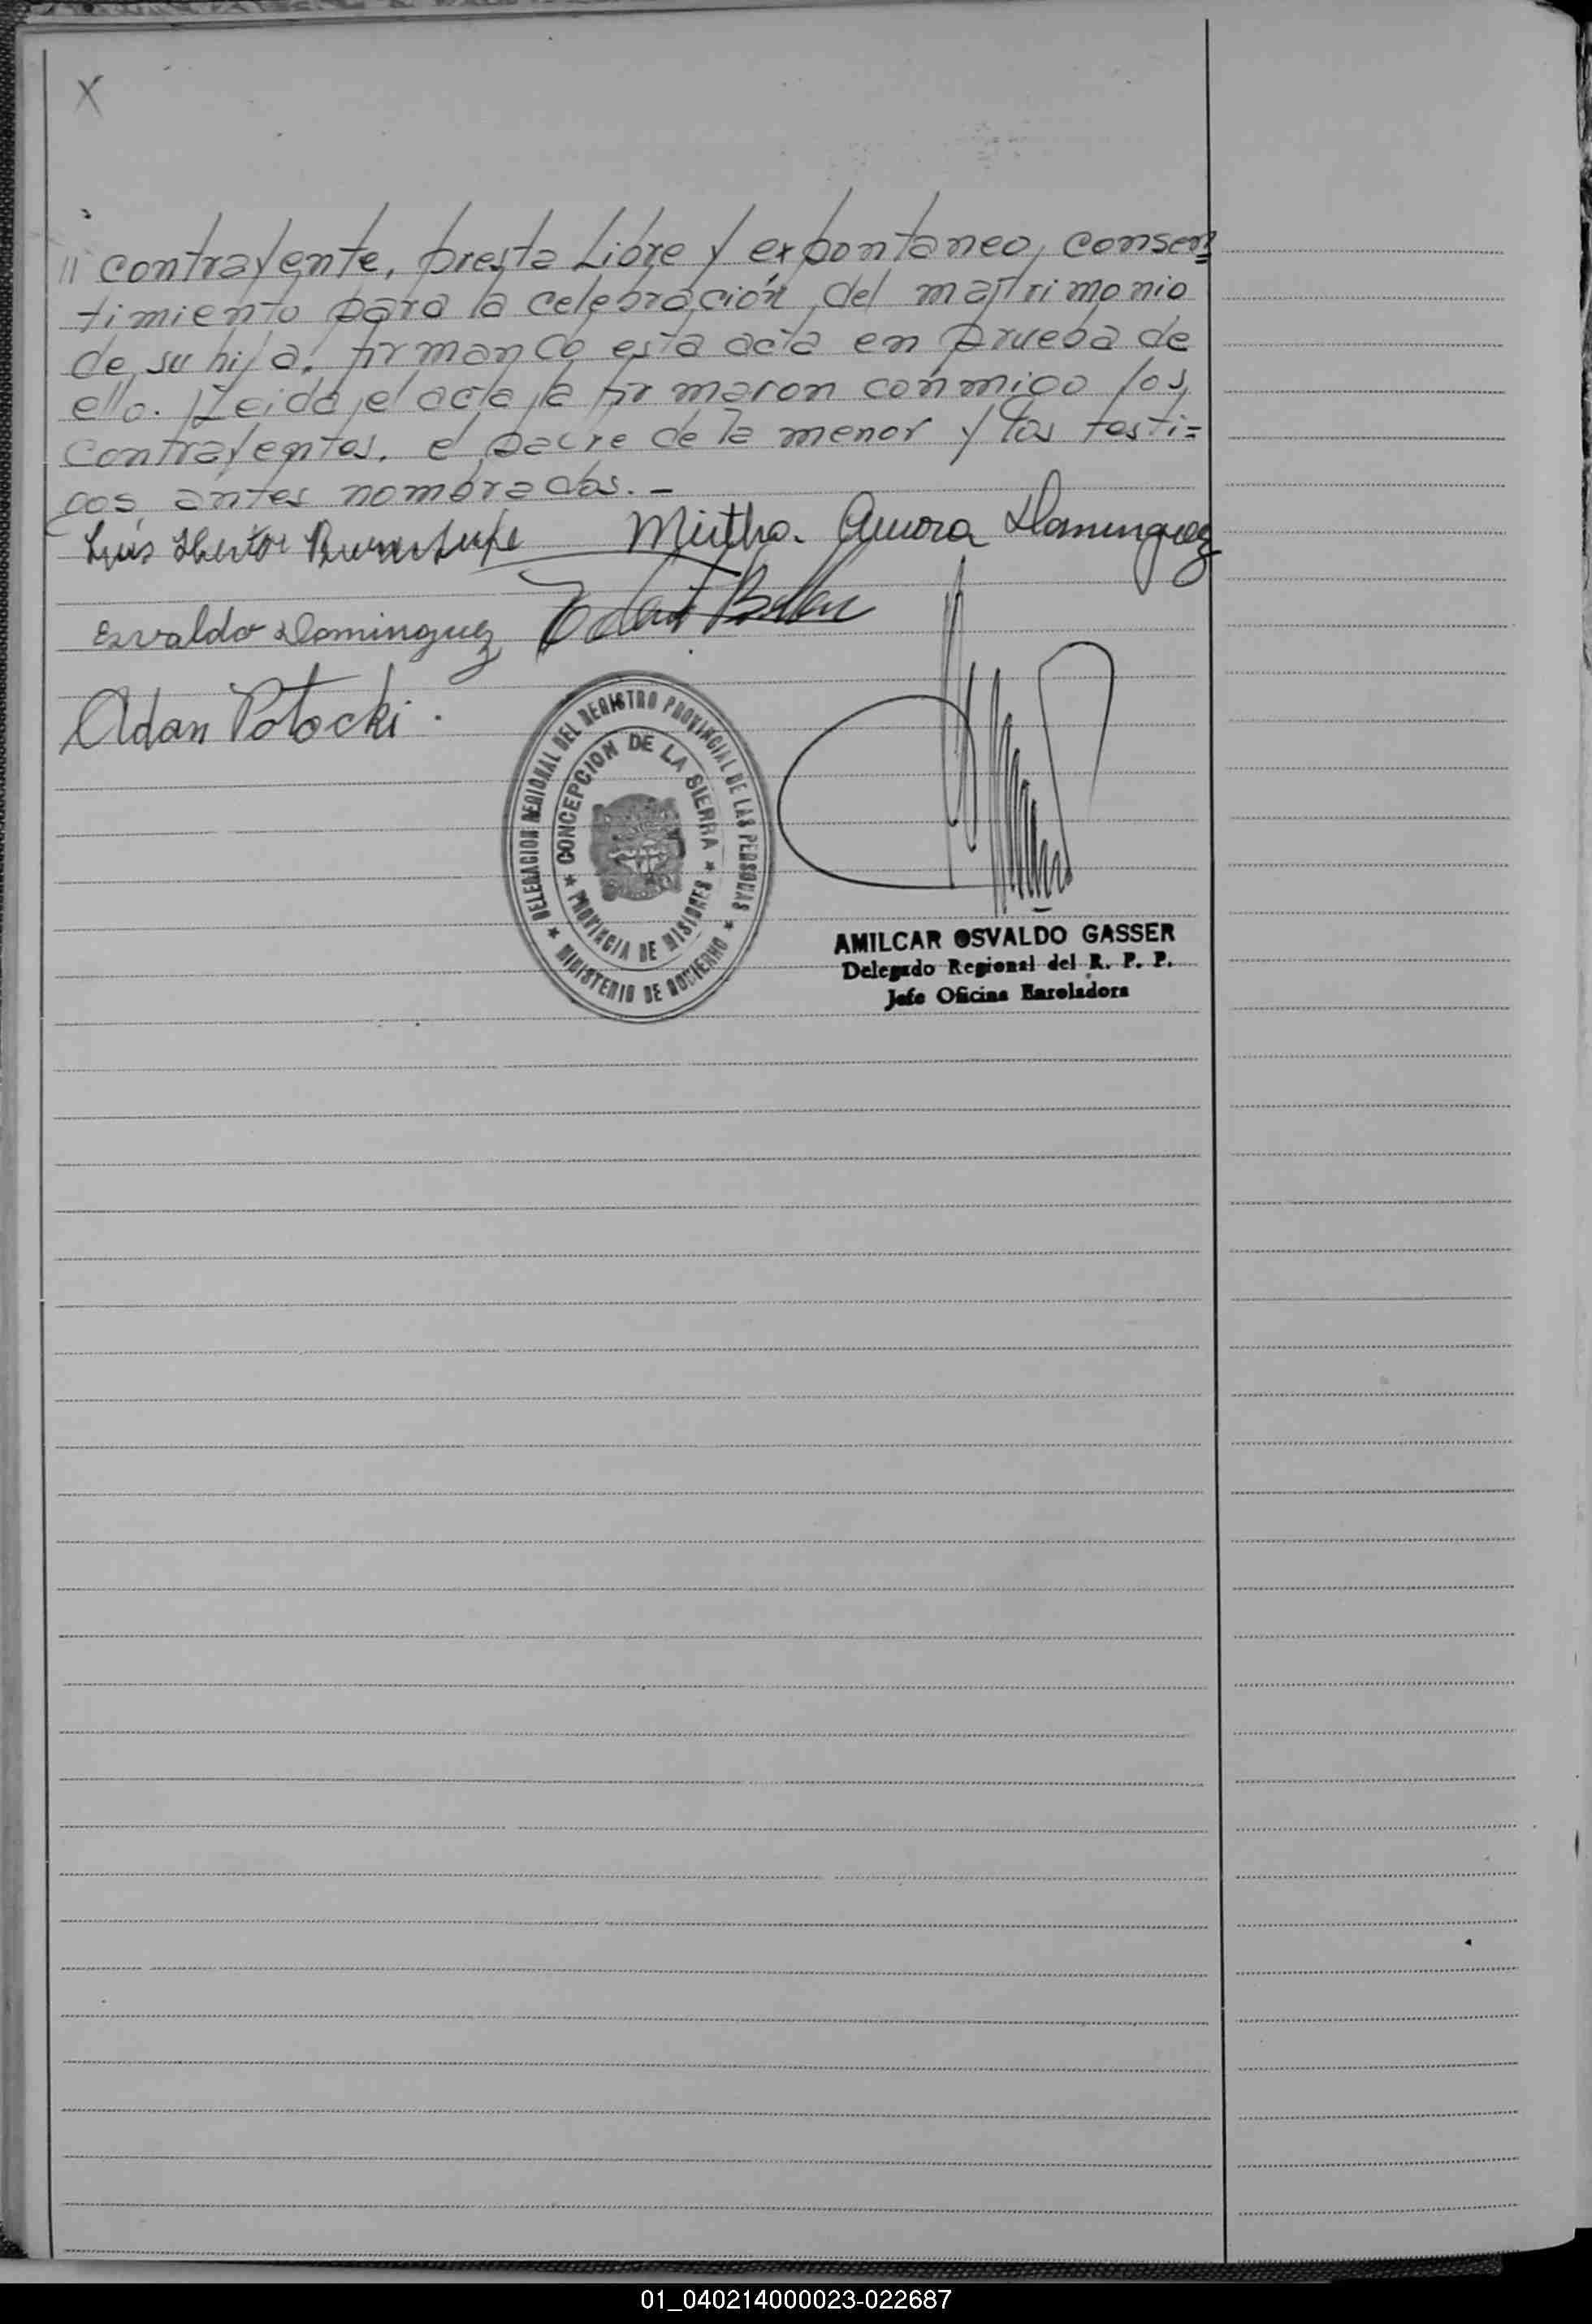 X
// contrayente, presta Libre y expontaneo, consen=
timiento para la celebración del matrimonio
de su hija, firmando esta acta en prueba de
ello. Leida el acta la firmaron conmigo los
contrayentes, el padre de la menor y los testi=
gos antes nombrados.-
Luis Hector Mirtha Aurora Dominguez
Esvaldo Dominguez
Adan Potocki.
DELEGACION REGIONAL DEL REGISTRO PROVINCIAL DE LAS PERSONAS
★ MINISTERIO DE GOBIERNO ★
★ CONCEPCION DE LA SIERRA ★
PROVINCIA DE MISIONES
AMILCAR OSVALDO GASSER
Delegado Regional del R. P. P.
Jefe Oficina Enroladora
01_040214000023-022687